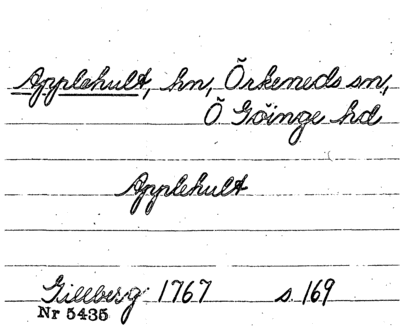 Applehult, hn, Örkeneds sn,
Ö Göinge hd
Applehult
Gillberg 1767 s. 169
Nr 5435